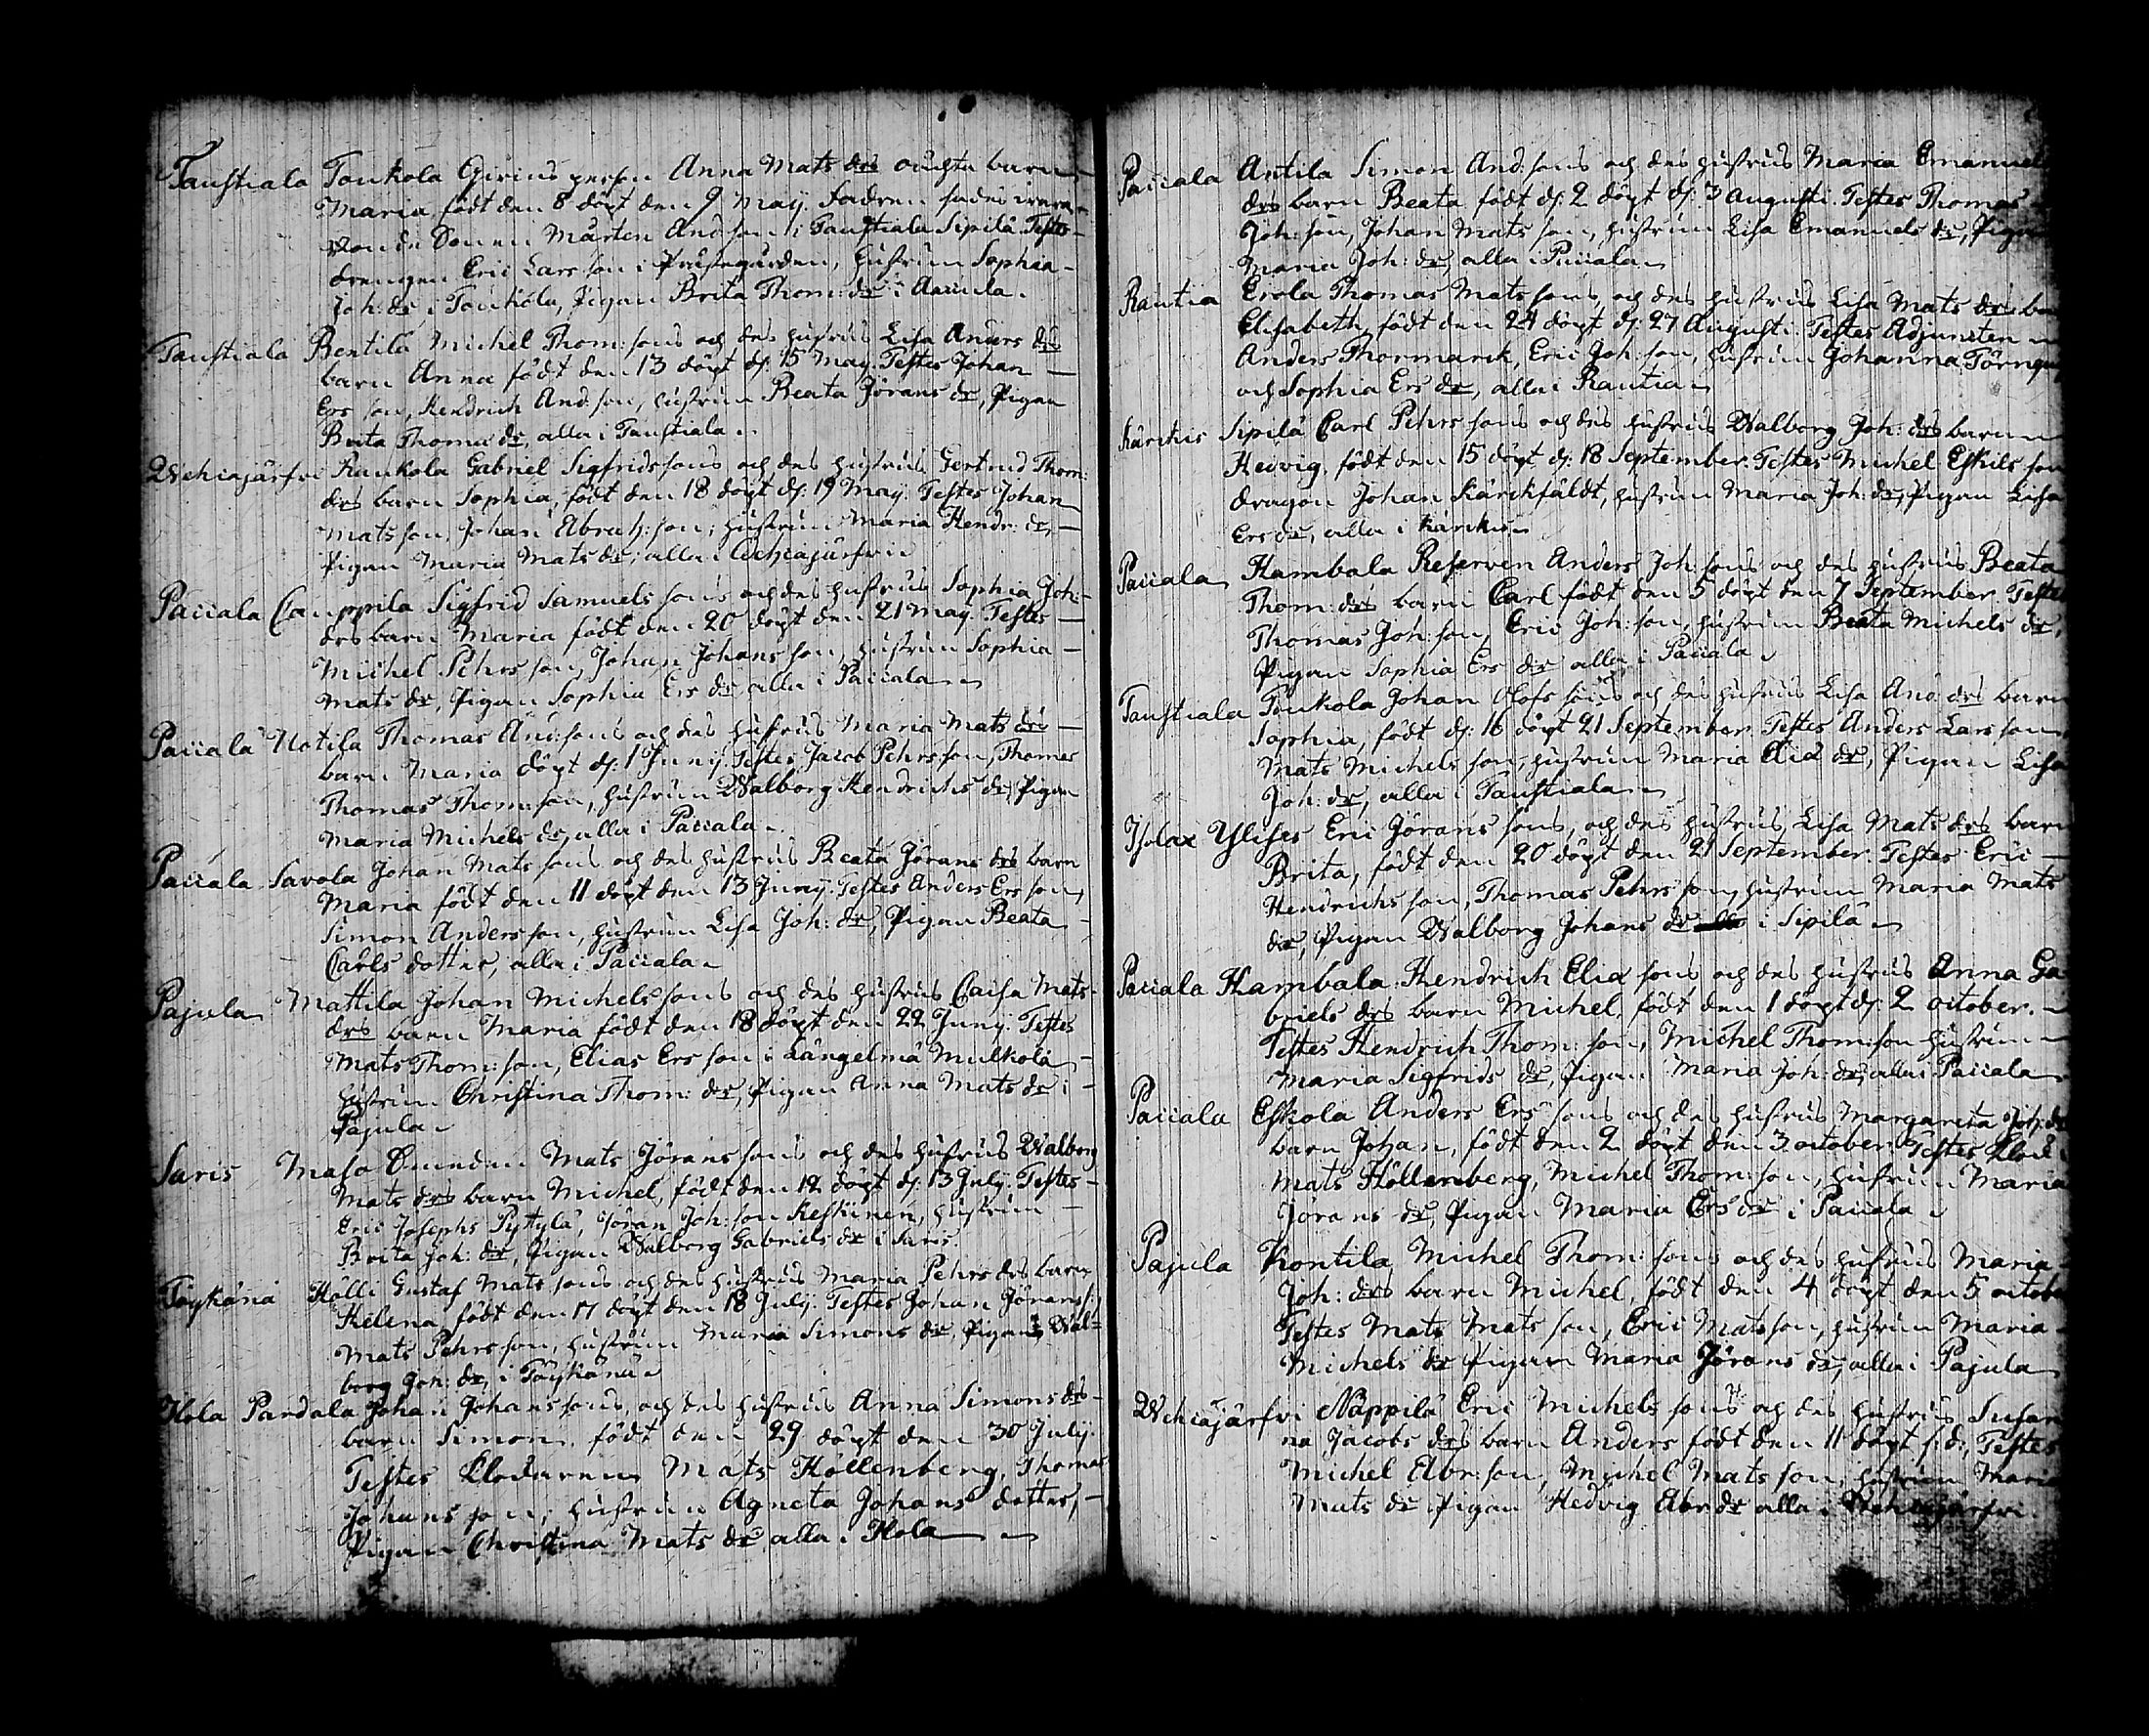 Taustiala Toukola Gifius person Anna Mats drs oächta barn
Maria född den 8 döpt den 9 Maij. fadren sades vara
Bonde Sonen Mårten And:son i Taustiala Sipilä Testes
drengen Eric Lars son i Prästegården, hustrun Sophia
Joh: dr i Toukola, Pigan Brita Thom: dr i
Taustiala Bentila Michel Thom: sons och des hustrus Lisa Anders drs
barn Anna födt den 13 döpt d: 15 May. Testes Johan
Ers son, Hendrich And: son, hustrun Beata Jörans dr, Pigan
Brita Thomæ dr, alla i Taustiala
Wehiajärfvi Raukola Gabriel Sigfridssons och des hustrus Gertrud Thom:
drs barn Sophia, födt den 18 döpt d: 19 May. Testes Johan
Mats son, Johan Abrah: son, hustrun Maria Hendr: dr,
Pigan Maria Mats dr, alla i Wehiajärfvi
Paiiala Cauppila Sigfrid Samuels sons och des hustrus Sophia Joh:
drs barn Maria födt den 20 döpt den 21 May. Testes
Michel Pehrs son, Johan Johans son, hustrun Sophia
Mats dr, Pigan Sophia Ers dr alla i Paiiala
Paiiala Uotila Thomas And: sons och des hustrus Maria Mats drs
barn Maria döpt d: 1 Junij. Testes Jacob Pehrs son, Thomas
Thomas Thom: son, hustrun Walborg Hendrichs dr, Pigan
Maria Michels dr, alla i Paiiala
Paiiala Savola Johan Mats sons och des hustrus Beata Jörans drs barn
Maria födt den 11 döpt den 13 Junij. Testes Anders Ers son,
Simon Anders son, hustrun Lisa Joh: dr, Pigan Beata
Carls dotter, alla i Paiiala
Pajula Mattila Johan Michels sons och des hustrus Caisa Mats
drs barn Maria födt den 18 döpt den 22 Junij. Testes
Mats Thom: son, Elias Ers son i Längelmä Mulkola
hustrun Christina Thom: dr, Pigan Anna Mats dr i
Pajula
Saris Maso Mats Jörans sons och des hustrus Walborg
Mats drs barn Michel, födt den 12 döpt d: 13 July. Testes
Eric Josephs Pytylä, Jöran Joh: son Keskinen, hustrun
Brita Joh: dr, Pigan Walborg Gabriels dr i Saris.
Töyskänä Hölli Gustaf Mats sons och des hustrus Maria Pehrs drs barn
Helena, födt den 17 döpt den 18 July. Testes Johan Jörans s:
Mats Pehrs son, hustrun Maria Simons dr, Pigan Wal=
borg Joh: dr, i Töyskänä
Hola Pardala Johan Johans sons och des hustrus Anna Simons drs
barn Simon, födt den 29 döpt den 30 July.
Testes Klockaren Mats Höllenberg, Thomas
Johans son, hustrun Agneta Johans dotter,
Pigan Christina Mats dr alla i Hola
Paiiala Antila Simon And: sons och des hustrus Maria Emanuels
drs barn Beata födt d: 2 döpt d: 3 Augusti. Testes Thomas
Joh: son, Johan Mats son, hustrun Lisa Emanuels dr, Pigan
Maria Joh: dr, alla i Paiiala
Rautia Erola Thomas Mats sons, och des hustrus Lisa Mats drs barn
Elisabeth, födt den 24 döpt d: 27 Augusti. Testes Adjuncten
Anders Thormarck, Eric Joh: son, hustrun Johanna Törnqu
och Sophia Ers dr, alla i Rautia
Kärckis Sipilä Carl Pehrs sons och des hustrus Walborg Joh: drs barn
Hedvig, födt den 15 döpt d: 18 September. Testes Michel Eskils son
dragon Johan Kärckfäldt, hustrun Maria Joh: dr, Pigan Lisa
Ers dr, alla i Kärckis
Paiiala Hambala Reserven Anders Joh: sons och des hustrus Beata
Thom: drs barn Carl födt den 5 döpt den 7 September. Testes
Thomas Joh: son, Eric Joh: son, hustrun Beata Michels dr,
Pigan Sophia Ers dr alla i Paiiala
Taustiala Toukola Johan Olofs sons och des hustrus Lisa And: drs barn
Sophia, födt d: 16 döpt 21 September. Testes Anders Lars son
Mats Michels son, hustrun Maria Eliæ dr, Pigan Lisa
Joh: dr, alla i Taustiala
Isolax Ylises Eric Jörans sons, och des hustrus Lisa Mats drs barn
Brita, födt den 20 döpt den 21 September. Testes Eric
Hendrichs son, Thomas Pehrs son, hustrun Maria Mats
dr, Pigan Walborg Johans dr i Sipilä
Paiiala Hambala Hendrich Eliæ sons och des hustrus Anna Ga
briels drs barn Michel, födt den 1 döpt d: 2 october.
Testes Hendrich Thom: son, Michel Thom: son hustrun
Maria Sigfrids dr, Pigan Maria Joh: dr, alla i Paiiala
Paiiala Eskola Anders Ers sons och des hustrus Margareta Joh: drs
barn Johan, födt den 2 döpt den 3 october. Testes Klock:
Mats Höllenberg, Michel Thom: son, hustrun Maria
Jörans dr, Pigan Maria Ers dr i Paiiala
Pajula Kontila Michel Thom: sons och des hustrus Maria
Joh: drs barn Michel, födt den 4 döpt den 5 october
Testes Mats Mats son, Eric Mats son, hustrun Maria
Michels dr Pigan Maria Jörans dr, alla i Pajula
Wehiajärfvi Näppilä Eric Michels sons och des hustrus Susan
na Jacobs drs barn Anders födt den 11 döpt s: d:, Testes
Michel Abr: son, Michel Mats son, hustrun Maria
Mats dr Pigan Hedvig Abr: dr alla i Wehiajärfvi